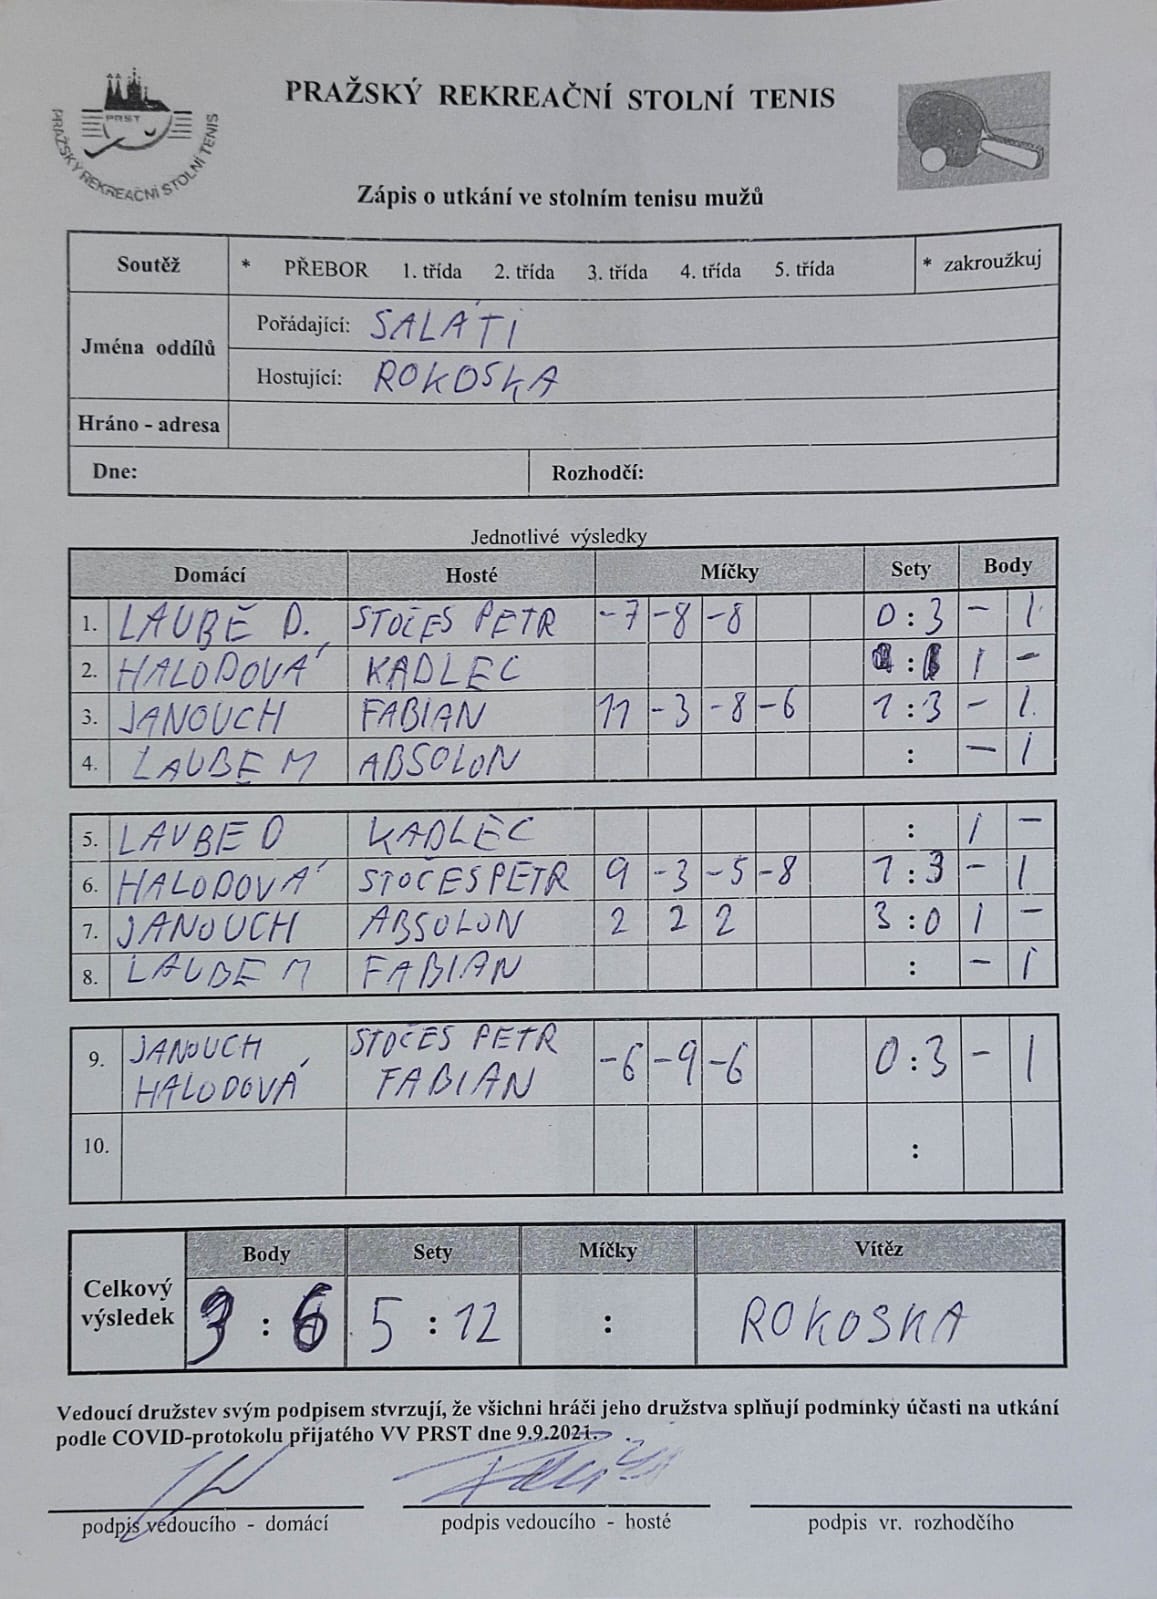 PRAŽSKÝ REKREAČNÍ STOLNÍ TENIS
PRST
PRAŽSKÝ REKREAČNÍ STOLNÍ TENIS
Zápis o utkání ve stolním tenisu mužů
Soutěž * PŘEBOR 1. třída 2. třída 3. třída 4. třída 5. třída * zakroužkuj
Jména oddílů
Pořádající: SALÁTI
Hostující: ROKOSKA
Hráno - adresa
Dne: Rozhodčí:
Jednotlivé výsledky
Domácí Hosté Míčky Sety Body
1. LAUBE D. STOČES PETR -7 -8 -8 0:3 - 1
2. HALODOVÁ KADLEC : 1 -
3. JANOUCH FABIAN 11 -3 -8 -6 1:3 - 1
4. LAUBE M ABSOLON : - 1
5. LAUBE D KADLEC : 1 -
6. HALODOVÁ STOČES PETR 9 -3 -5 -8 1:3 - 1
7. JANOUCH ABSOLON 2 2 2 3:0 1 -
8. LAUBE M FABIAN : - 1
9. JANOUCH STOČES PETR -6 -9 -6 0:3 - 1
HALODOVÁ FABIAN
10. :
Celkový výsledek
Body Sety Míčky Vítěz
3 : 6 5 : 12 : ROKOSKA
Vedoucí družstev svým podpisem stvrzují, že všichni hráči jeho družstva splňují podmínky účasti na utkání
podle COVID-protokolu přijatého VV PRST dne 9.9.2021.
podpis vedoucího - domácí podpis vedoucího - hosté podpis vr. rozhodčího